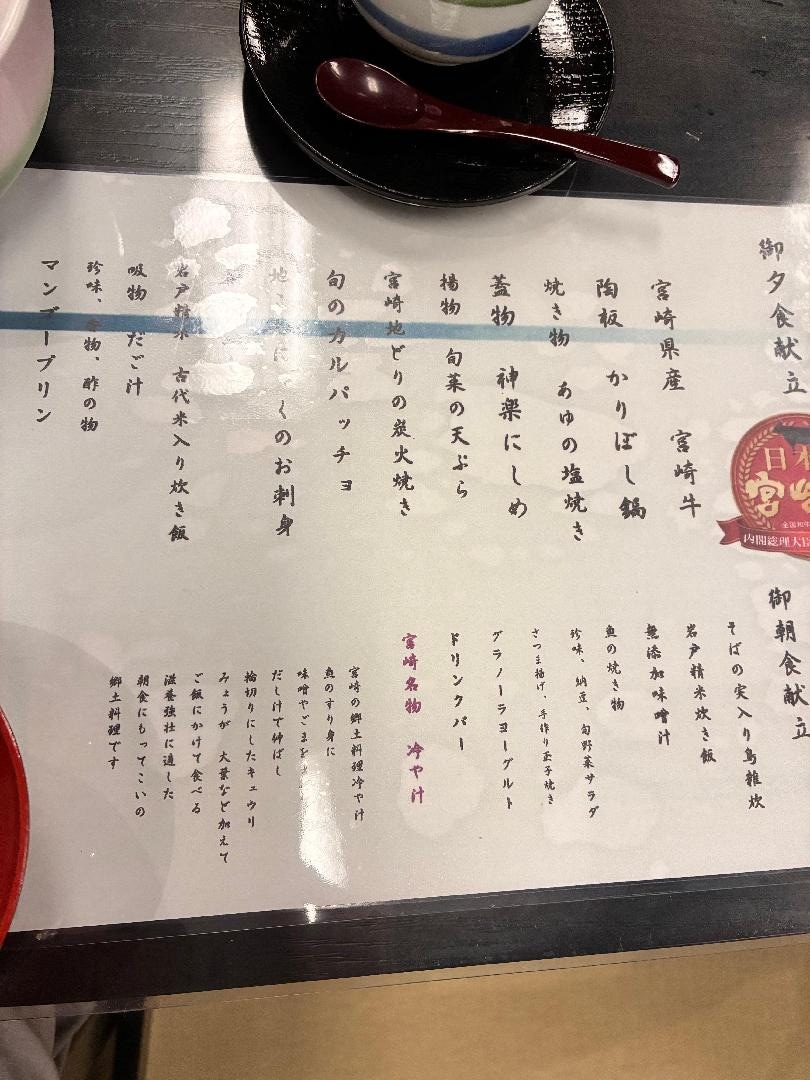 御夕食献立
宮崎県産 宮崎牛
陶板 かりぼし鍋
焼き物 あゆの塩焼き
蓋物 神楽にしめ
揚物 旬菜の天ぷら
宮崎地どりの炭火焼き
旬のカルパッチョ
地 くのお刺身
岩戸精米 古代米入り炊き飯
吸物 だご汁
珍味、香物、酢の物
マンゴープリン
日本
宮崎
内閣総理大臣
御朝食献立
そばの実入り鳥雑炊
岩戸精米炊き飯
無添加味噌汁
魚の焼き物
珍味、納豆、旬野菜サラダ
さつま揚げ、手作り玉子焼き
グラノーラヨーグルト
ドリンクバー
宮崎名物 冷や汁
宮崎の郷土料理冷や汁
魚のすり身に
味噌やごまを
だし汁で伸ばし
輪切りにしたキュウリ
みょうが 大葉など加えて
ご飯にかけて食べる
滋養強壮に適した
朝食にもってこいの
郷土料理です